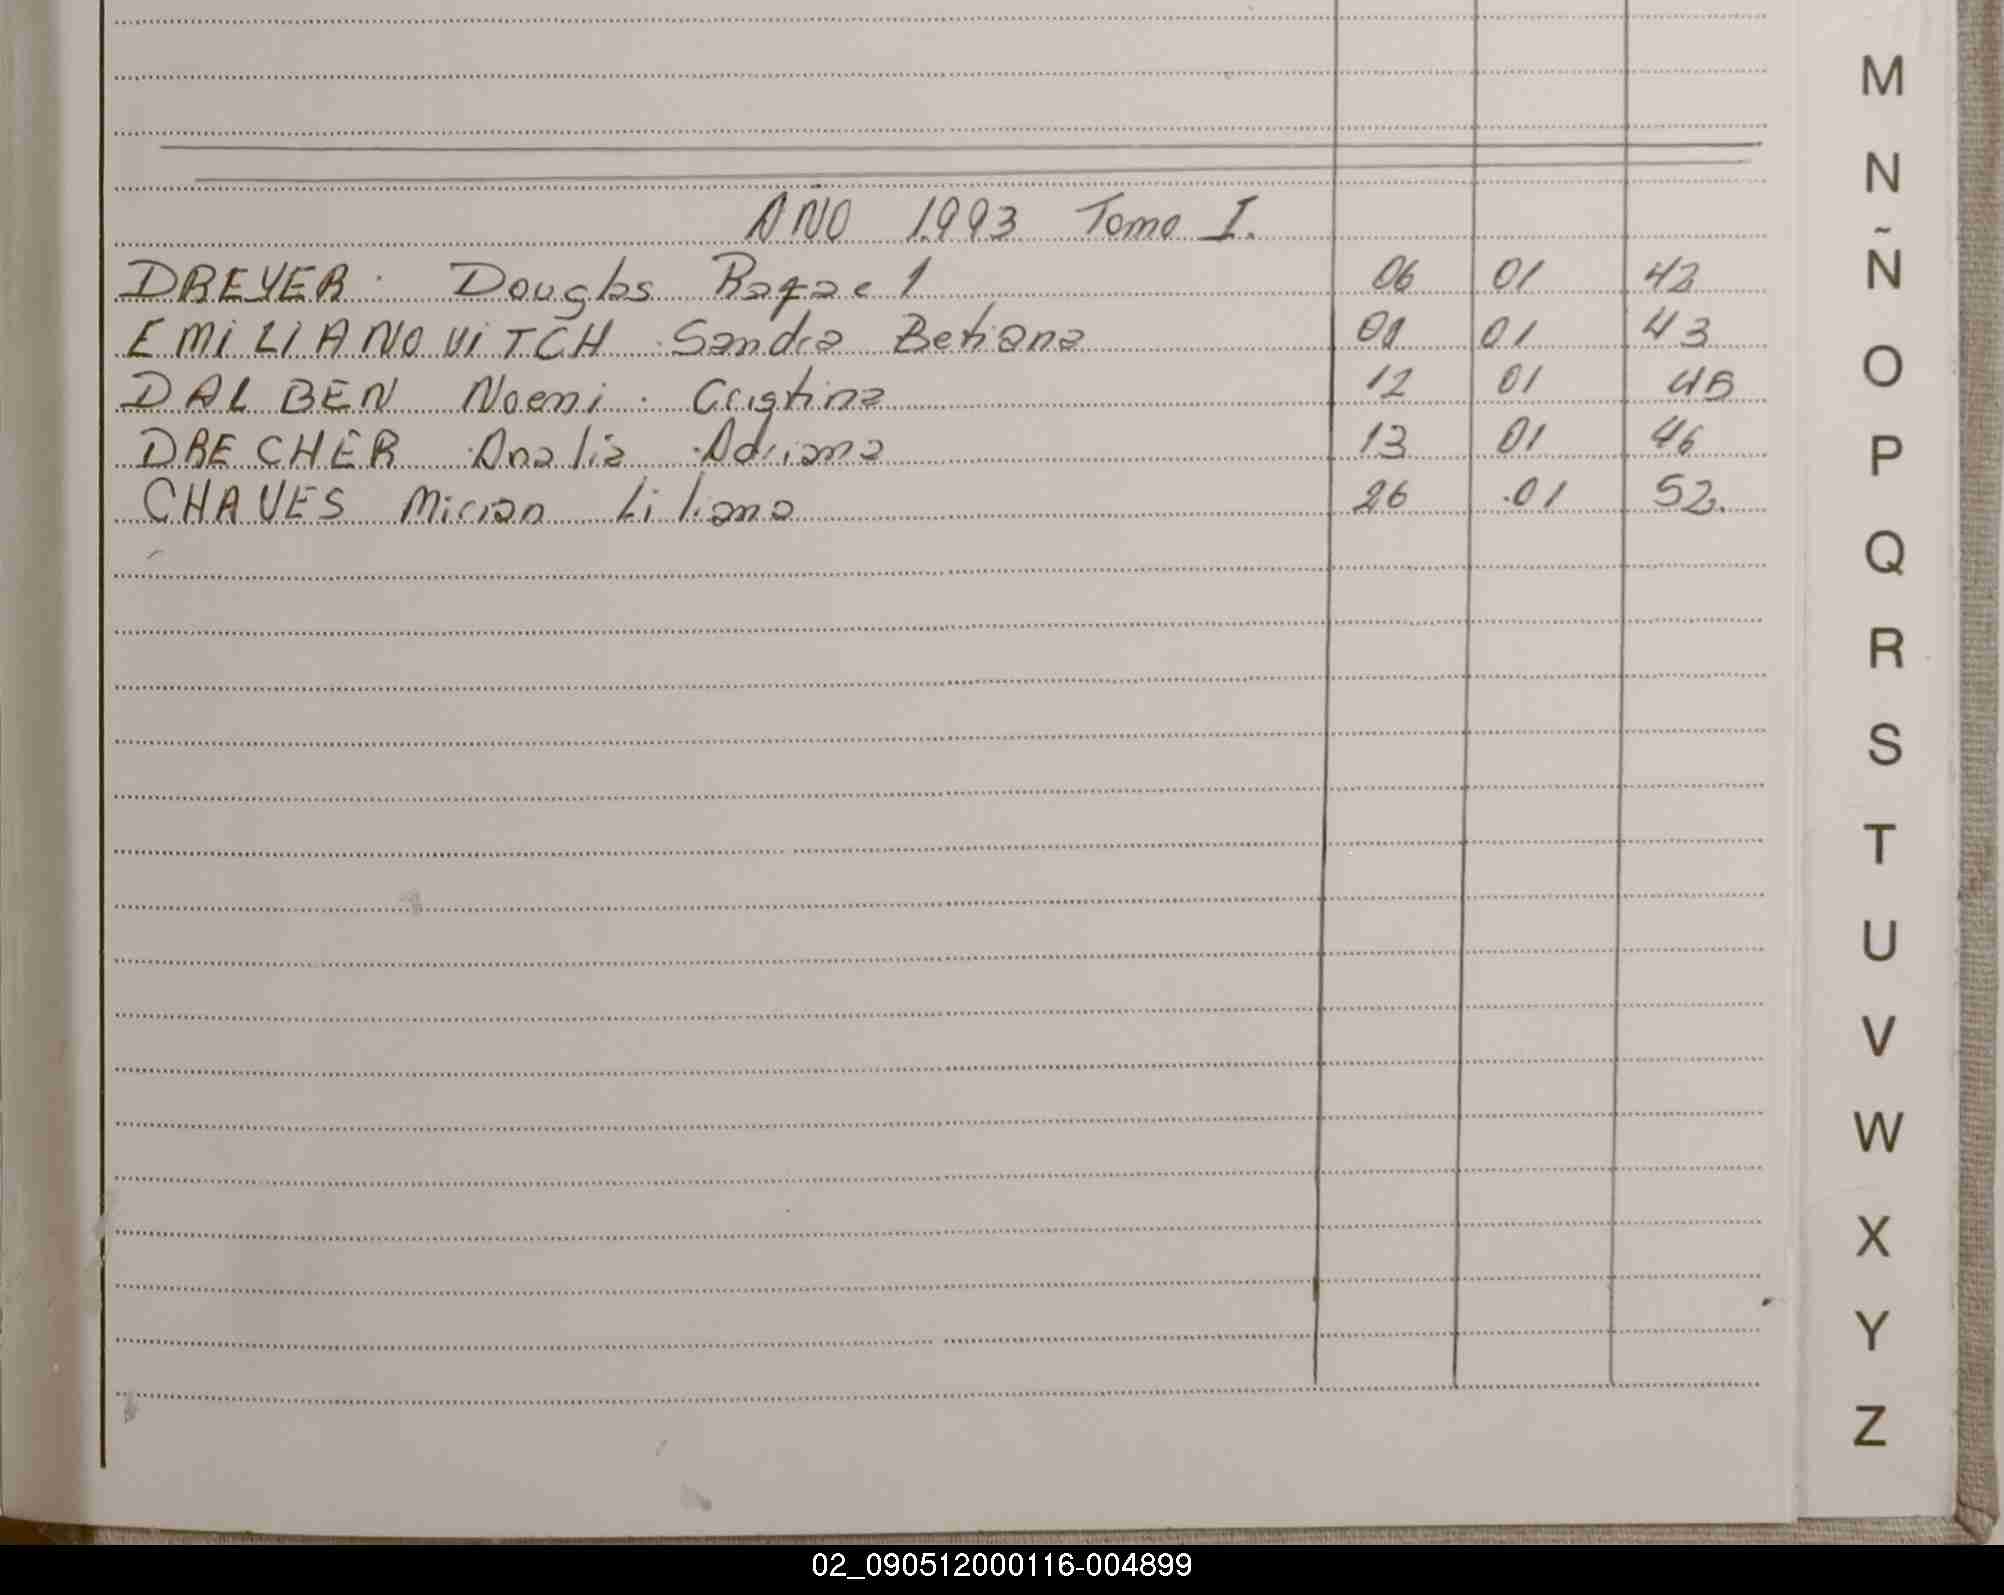 AÑO 1993 Tomo I.
DREYER Douglas Rafael 06 01 42
EMILIANOVITCH Sandra Betiana 01 43
DAL BEN Noemi Cristina 12 01 45
DRECHER Analia Adriana 13 01 46
CHAVES Mirian Liliana 26 01 52.
M
N
Ñ
O
P
Q
R
S
T
U
V
W
X
Y
Z
02_090512000116-004899